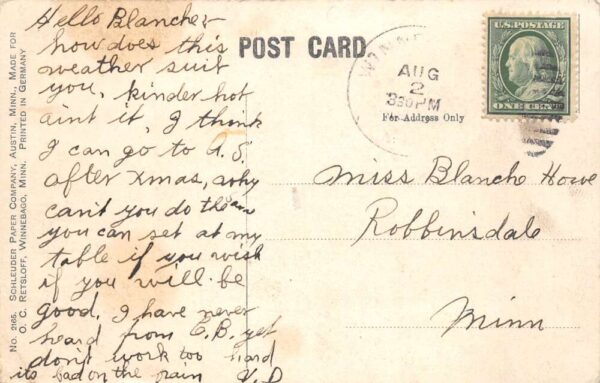 Hello Blanche
how does this
weather suit
you, kinder hot
aint it, I think
I can go to A. S.
after Xmas, why
can't you do the
you can set at my
table if you wish
if you will be
good. I have never
heard from C.B. yet
don't work too hard
its bad on the pain V.P
POST CARD
WINNE
AUG
2
3 30 PM
For Address Only
U.S. POSTAGE
ONE CENT
Miss Blanche Howe
Robbinsdale
Minn
No. 2166. SCHLEUDER PAPER COMPANY, AUSTIN, MINN., MADE FOR
O. C. RETSLOFF, WINNEBAGO, MINN. PRINTED IN GERMANY